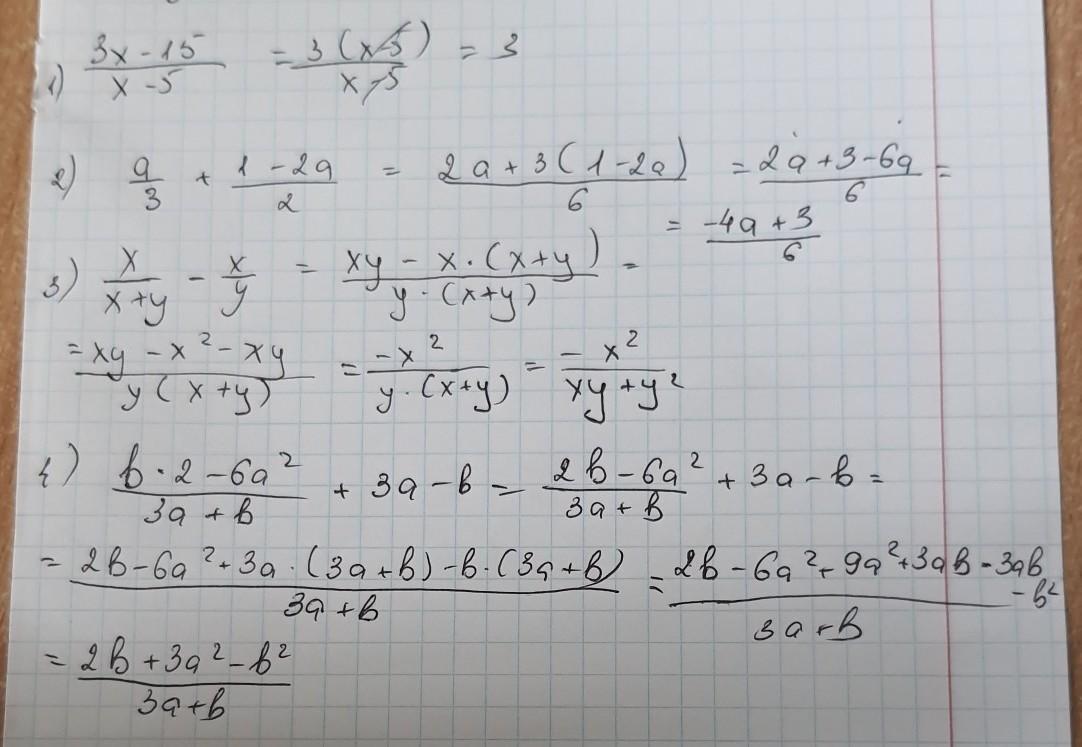 1) (3x - 15)/(x - 5) = 3(x - 5)/(x - 5) = 3
2) a/3 + (1 - 2a)/2 = (2a + 3(1 - 2a))/6 = (2a + 3 - 6a)/6 =
= (-4a + 3)/6
3) x/(x+y) - x/y = (xy - x·(x+y))/(y·(x+y)) =
= (xy - x² - xy)/(y(x+y)) = -x²/(y·(x+y)) = -x²/(xy + y²)
4) (b·2 - 6a²)/(3a + b) + 3a - b = (2b - 6a²)/(3a + b) + 3a - b =
= (2b - 6a² + 3a·(3a+b) - b·(3a+b))/(3a + b) = (2b - 6a² + 9a² + 3ab - 3ab - b²)/(3a + b)
= (2b + 3a² - b²)/(3a + b)